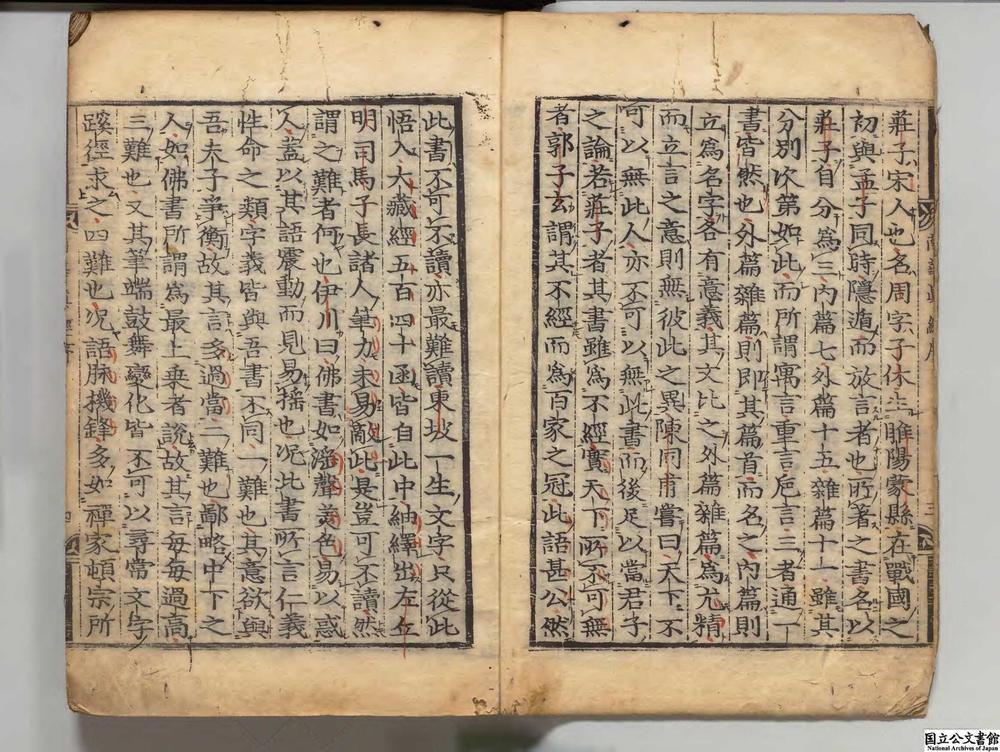 莊子宋人也名周字子休生睢陽蒙縣在戰國之
初與孟子同時隱遁而放言者也所著之書名以
莊子自分爲三內篇七外篇十五雜篇十一雖其
分別次第如此而所謂寓言重言巵言三者通一
書皆然也外篇雜篇則即其篇首而名之內篇則
立爲名字各有意義其文比之外篇雜篇爲尤精
而立言之意則無彼此之異陳同甫嘗曰天下不
可以無此人亦不可以無此書而後足以當君子
之論若莊子者其書雖爲不經實天下所不可無
者郭子玄謂其不經而爲百家之冠此語甚公然
此書不可不讀亦最難讀東坡一生文字只從此
悟入大藏經五百四十函皆自此中紬繹出左丘
明司馬子長諸人筆力未易敵此是豈可不讀然
謂之難者何也伊川曰佛書如滛聲美色易以惑
人蓋以其語震動而見易搖也况此書所言仁義
性命之類字義皆與吾書不同一難也其意欲與
吾夫子爭衡故其言多過當二難也鄙略中下之
人如佛書所謂爲最上乘者說故其言每每過高
三難也又其筆端鼓舞變化皆不可以尋常文字
蹊徑求之四難也况語脉機鋒多如禪家頓宗所
国立公文書館
National Archives of Japan